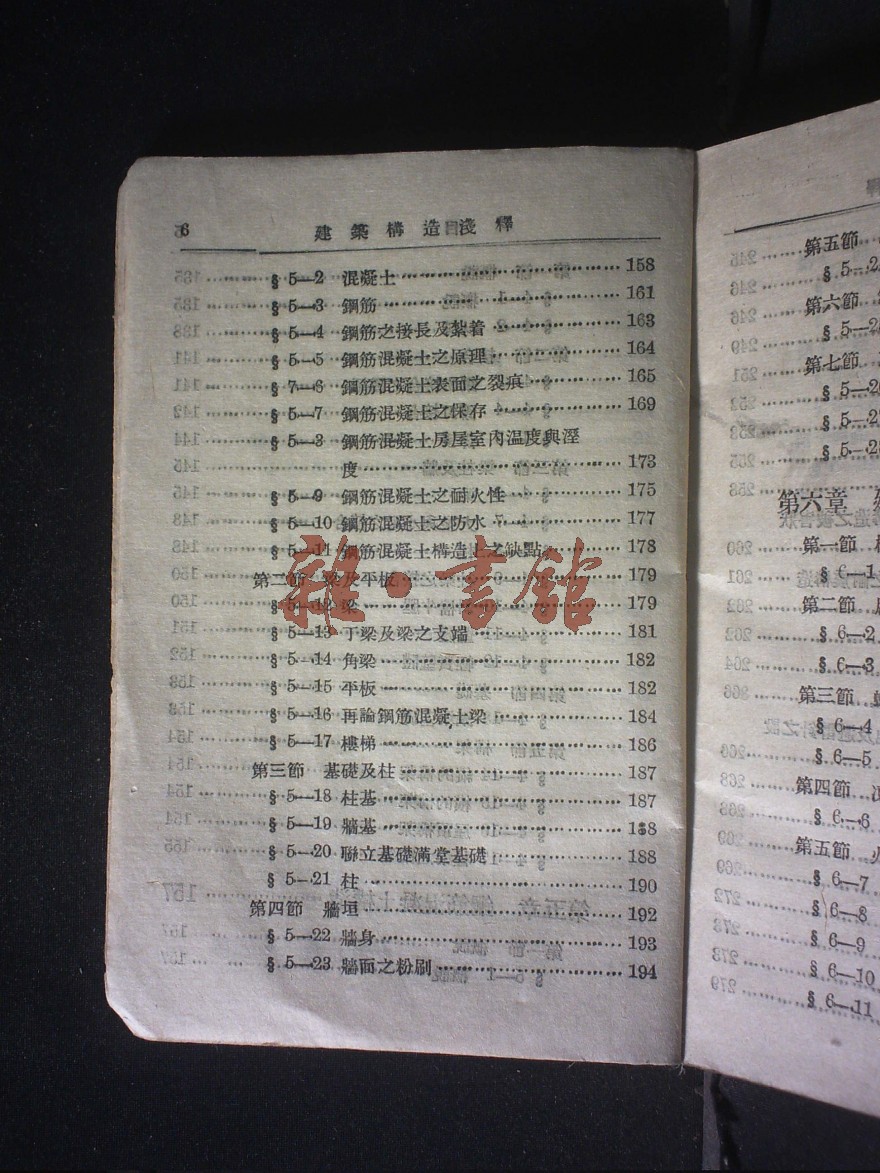 6 建築構造淺釋
§ 5—2 混凝土 158
§ 5—3 鋼筋 161
§ 5—4 鋼筋之接長及紮着 163
§ 5—5 鋼筋混凝土之原理 164
§ 7—6 鋼筋混凝土表面之裂痕 165
§ 5—7 鋼筋混凝土之保存 169
§ 5—3 鋼筋混凝土房屋室內温度與溼
度 173
§ 5—9 鋼筋混凝土之耐火性 175
§ 5—10 鋼筋混凝土之防水 177
§ 5—11 鋼筋混凝土構造上之缺點 178
第二節 梁及平板 179
§ 5—12 梁 179
§ 5—13 丁梁及梁之支端 181
§ 5—14 角梁 182
§ 5—15 平板 182
§ 5—16 再論鋼筋混凝土梁 184
§ 5—17 樓梯 186
第三節 基礎及柱 187
§ 5—18 柱基 187
§ 5—19 牆基 188
§ 5—20 聯立基礎滿堂基礎 188
§ 5—21 柱 190
第四節 牆垣 192
§ 5—22 牆身 193
§ 5—23 牆面之粉刷 194
雜·書館
第五節
§ 5—2
第六節
§ 5—2
第七節
§ 5—2
§ 5—2
§ 5—2
第六章
第一節
§ 6—1
第二節
§ 6—2
§ 6—3
第三節
§ 6—4
§ 6—5
第四節
§ 6—6
第五節
§ 6—7
§ 6—8
§ 6—9
§ 6—10
§ 6—11